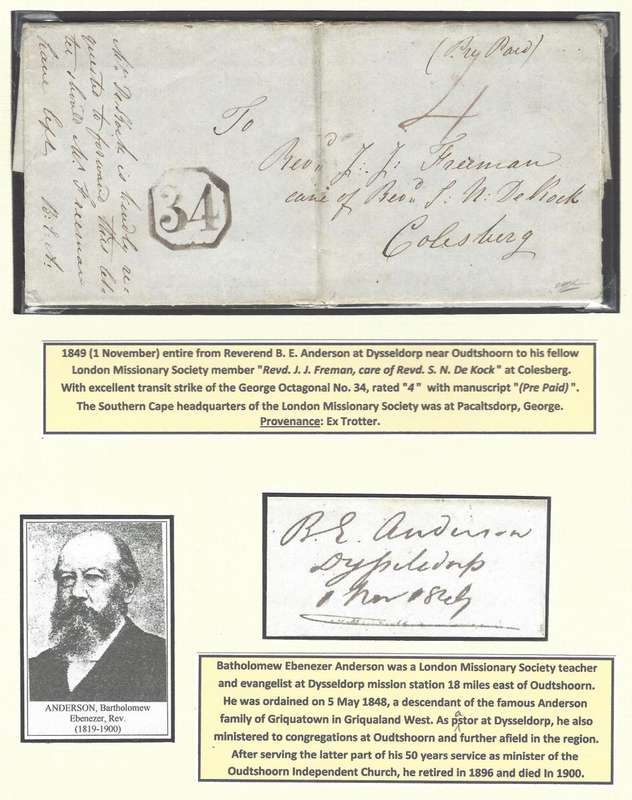 (Pre Paid)
4
To
Revd. J: J: Freeman
care of Revd. S. N: De Kock
Colesberg
34
Mr. De Kock is kindly re-
quested to forward this let-
ter should Mr Freeman
have left B. E. A.
1849 (1 November) entire from Reverend B. E. Anderson at Dysseldorp near Oudtshoorn to his fellow
London Missionary Society member "Revd. J. J. Freman, care of Revd. S. N. De Kock" at Colesberg.
With excellent transit strike of the George Octagonal No. 34, rated "4" with manuscript "(Pre Paid)".
The Southern Cape headquarters of the London Missionary Society was at Pacaltsdorp, George.
Provenance: Ex Trotter.
B. E. Anderson
Dysselsdorp
1 Nov 1849
ANDERSON, Bartholomew
Ebenezer, Rev.
(1819-1900)
Batholomew Ebenezer Anderson was a London Missionary Society teacher
and evangelist at Dysseldorp mission station 18 miles east of Oudtshoorn.
He was ordained on 5 May 1848, a descendant of the famous Anderson
family of Griquatown in Griqualand West. As pastor at Dysseldorp, he also
ministered to congregations at Oudtshoorn and further afield in the region.
After serving the latter part of his 50 years service as minister of the
Oudtshoorn Independent Church, he retired in 1896 and died In 1900.